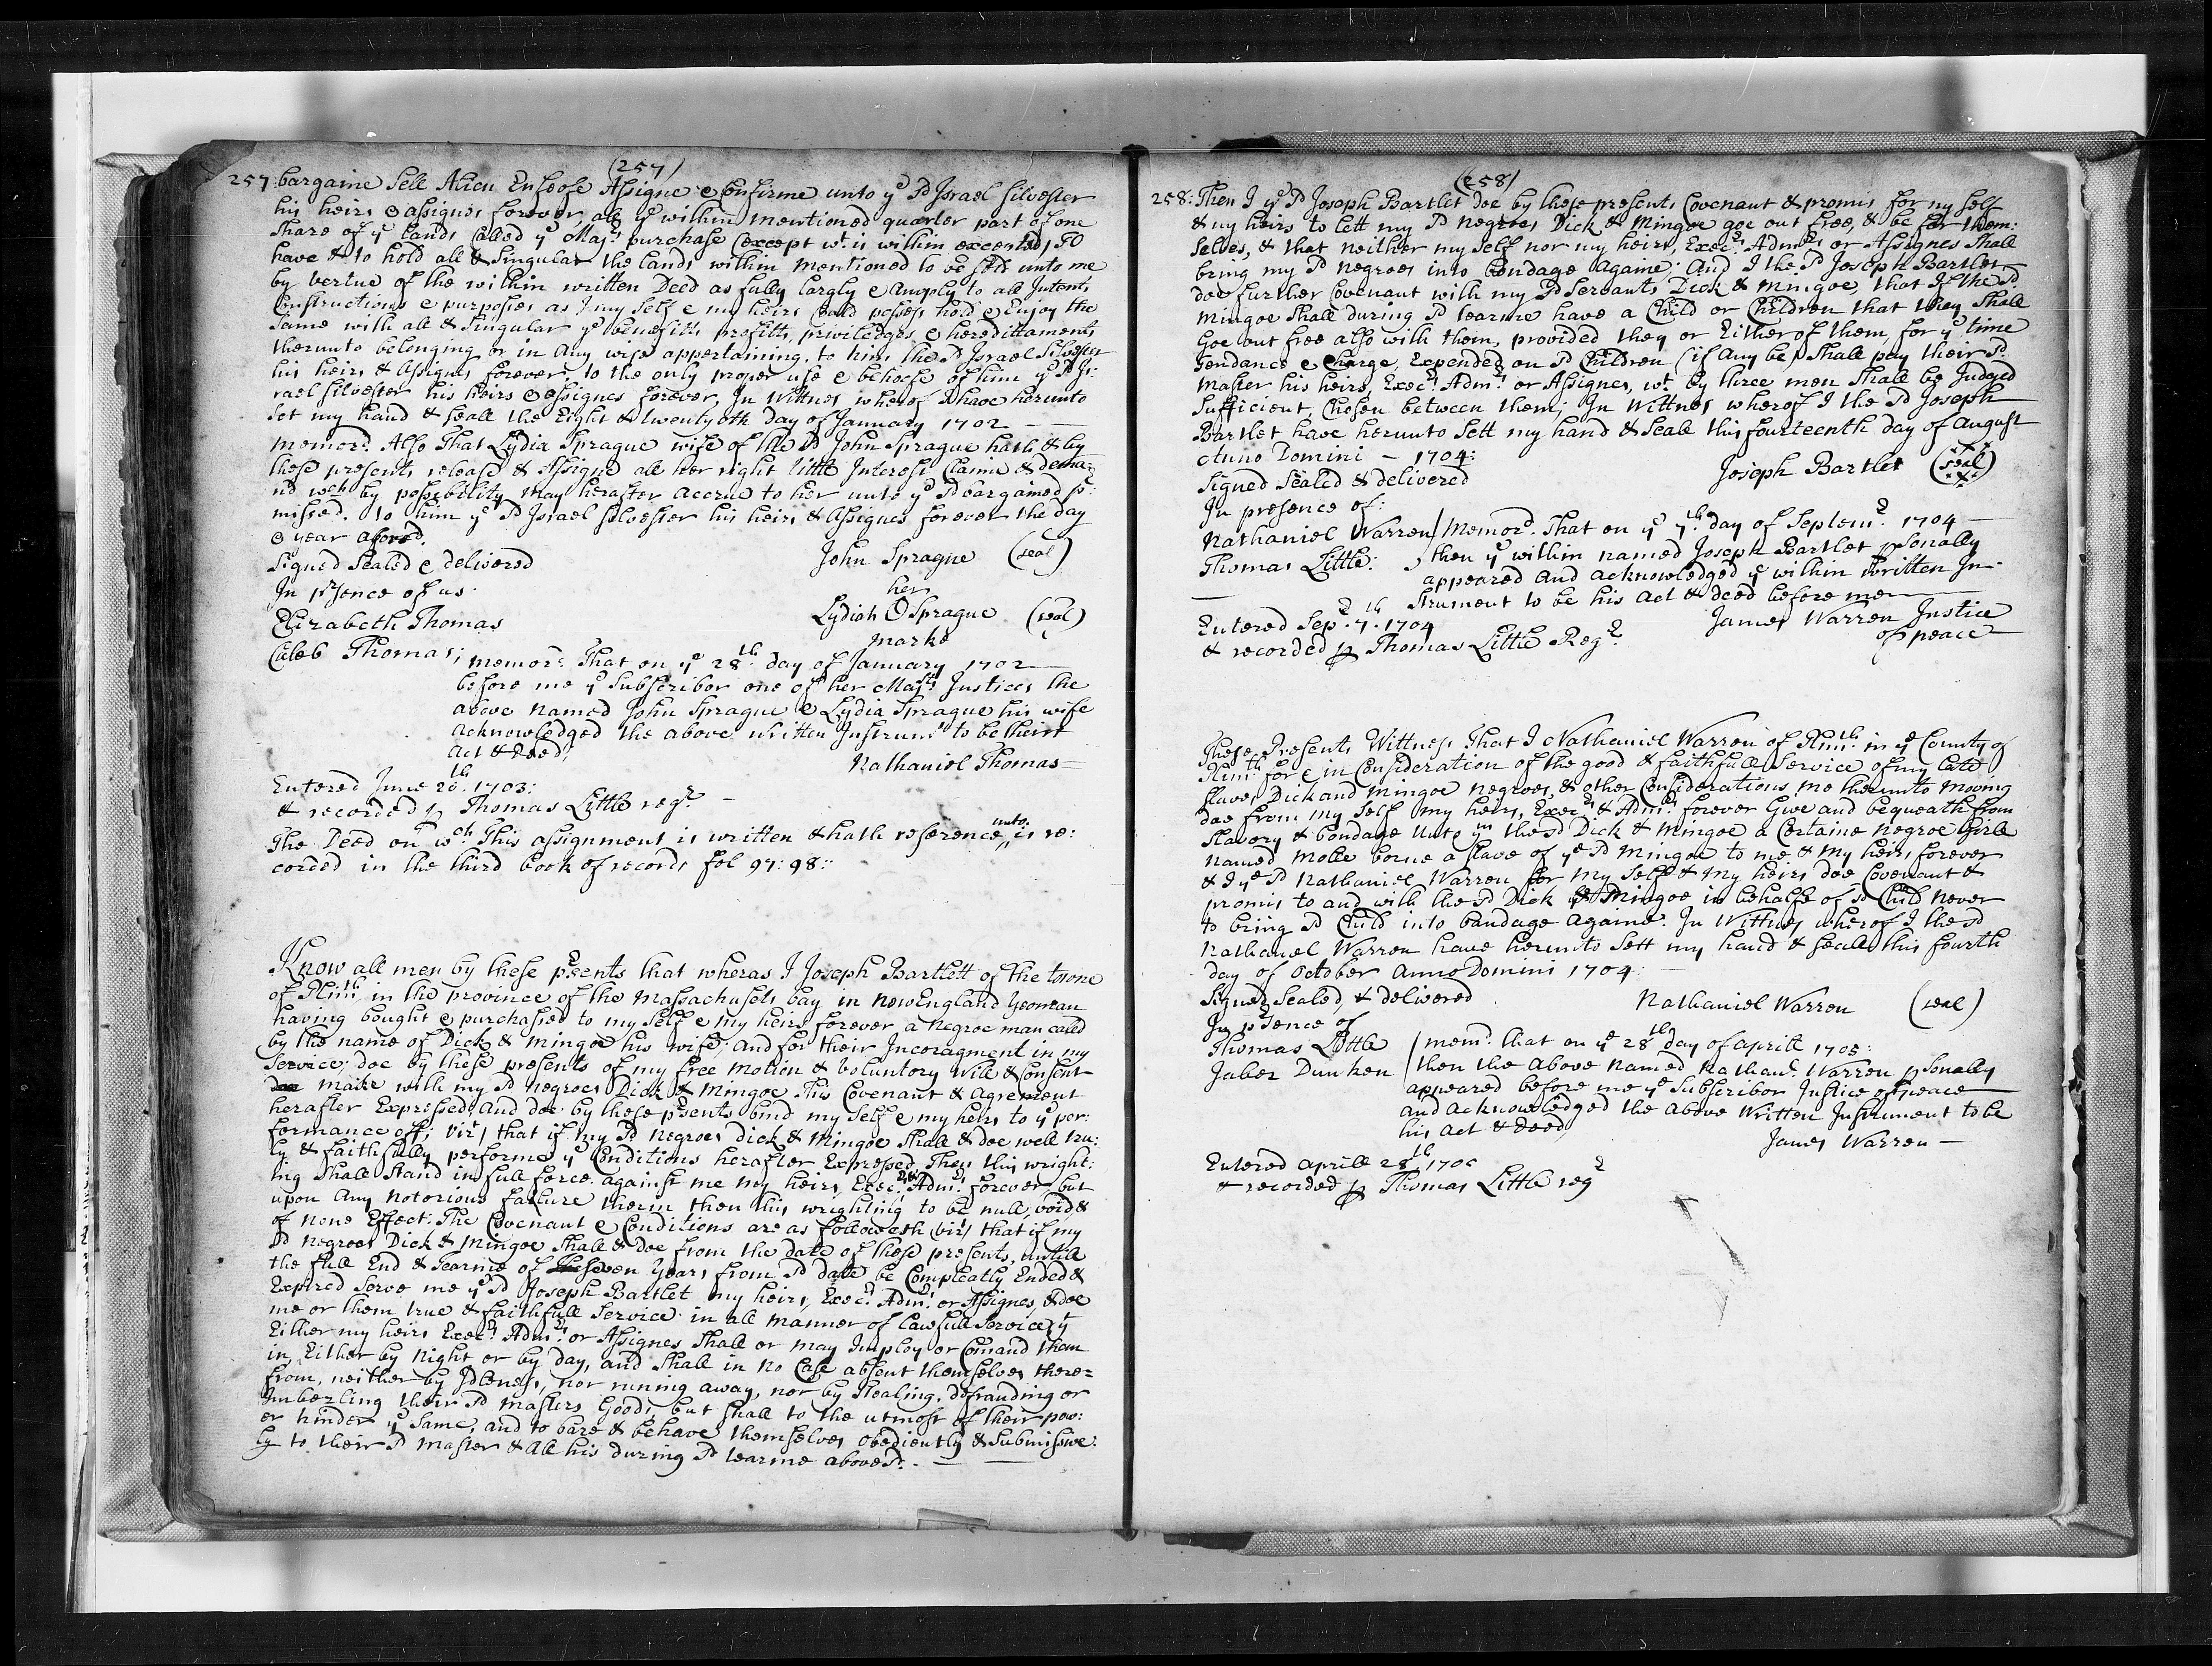 (257)
257: bargaine Sell Alien Enfeofe Assigne & Confirme unto ye sd Israel Silvester
his heirs & assignes forever, all ye within mentioned quarter part of one
Share of ye lands Called ye Majrs purchase (except wt is within excepted) To
have & to hold all & Singular the lands within mentioned to be sold unto me
by vertue of the within written Deed as fully largly & amply to all Intents
Constructions & purposses as I my Self & my heirs Could posses hold & Enjoy the
Same with all & Singular ye benefitts profitts, priviledges & heredittaments
therunto belonging or in Any wise appertaining. to him the sd Israel Silvester
his heirs & Assignes forever; to the only proper use & behoofe of him ye sd Is:
rael Silvester his heirs & assignes forever, In Wittnes wherof I have herunto
Set my hand & seall the Eight & twentyoth day of January 1702
memord. Also That Lydia Sprague wife of the sd John Sprague hath & by
these presents release & Assigne all her right tittle Interest Claime & dema=
nd wch by possebility may herafter accrue to her unto ye sd bargained pr:
missed. to him ye sd Israel Silvester his heirs & Assignes forever the day
& year aforesd.
Signed Sealed & delivered John Sprague (seal)
In prsence of us. her
Elizabeth Thomas Lydiah O Sprague (seal)
Caleb Thomas; marke
memord. That on ye 28th day of January 1702
before me ye Subscriber one of her Majsts Justices the
above named John Sprague & Lydia Sprague his wife
Acknowledged the above written Instrumt to be their
Act & Deed;
Nathaniel Thomas
Entered June 26th 1703:
& recorded p Thomas Little regr.
The Deed on wch This assignment is written & hath reference unto is re:
corded in the third book of records fol 97: 98::
Know all men by these prsents that wheras I Joseph Bartlett of the towne
of Plimth in the province of the Massachusets bay in New England Yeoman
having bought & purchassed to my Self & my heirs forever, a negroe man called
by the name of Dick & mingoe his wife; and for their Incoragment in my
Service; doe by these presents of my free motion & voluntory Will & Consent
make with my sd negroes Dick & Mingoe This Covenant & Agrement
herafter Expressed; And doe by these prsents bind my Self & my heirs to ye per:
formance off; vizt that if my sd negroes Dick & Mingoe Shall & doe well tru:
ly & faithfully performe ye Conditions herafter Expressed, Then this wright:
ing Shall Stand in full force against me my heirs Execrs Admrs forever, but
upon Any notorious failure therin then this wrighting to be null, void, &
of none Effect: The Covenant & Conditions are as followeth vizt that if my
sd negroes Dick & Mingoe Shall & doe from the date of these presents, untill
the full End & Tearme of seven Years from sd date be Compleatly Ended &
Expired Serve me ye sd Joseph Bartlet my heirs, Execrs Admrs or Assignes, & doe
me or them true & faithfull Service in all manner of lawfull Service yt
Either my heirs Execrs Admrs or Assignes Shall or may Imploy or Comand them
in, Either by night or by day, and Shall in no Case absent themselves there=
from, neither by Idleness, nor runing away, nor by Stealing, defrauding or
Imbezling their sd masters Goods, but shall to the utmost of their pow:
er hinder ye Same, and to bare & behave themselves obediently & Submissive:
ly to their sd master & All his during sd tearme abovesd.
(258)
258: Then I ye sd Joseph Bartlet doe by these presents Covenant & promis for my self
& my heirs to lett my sd negroes Dick & Mingoe goe out free, & be for them:
selves, & that neither my Self nor my heirs, Execrs Admrs or Assignes Shall
bring my sd negroes into bondage Againe; And I the sd Joseph Bartlet
doe further Covenant with my sd servants Dick & Mingoe, that If the sd
Mingoe Shall during sd tearme have a Child or Children that they Shall
Goe out free also with them, provided they or Either of them, for ye time
Tendance & Charge, Expended on sd Children (if Any be) Shall pay their sd
master his heirs, Execrs Admrs or Assignes, wt by three men Shall be Judged
Sufficient, Chosen between them; In Wittnes wherof I the sd Joseph
Bartlet have herunto Sett my hand & Seall this fourteenth day of August
Anno Domini - 1704:
Signed Sealed & delivered Joseph Bartlet (seal)
In presence of:
Nathaniel Warren / memord. That on ye 7th day of Septemr 1704
Thomas Little: then ye within named Joseph Bartlet psonally
appeared And acknowledged ye within written In-
strument to be his Act & deed before me
Entered Sepr 7th 1704 James Warren Justice
& recorded p Thomas Little Regr of peace
These Presents Wittness That I Nathaniel Warren of Plimth in ye County of
Plimth for & in Consideration of the good & faithfull Service of my late
slaves Dick and Mingoe negroes, & other Considerations me therunto moving
doe from my Self my heirs, Execrs & Admrs forever Give and bequeath from
Slavery & bondage Unto ym the sd Dick & Mingoe a Certaine negroe Girle
named Molle borne a slave of ye sd Mingoe to me & my heirs forever
& I ye sd Nathaniel Warren for my Self & my heirs doe Covenant &
promis to and with the sd Dick & Mingoe in behalfe of sd Child never
to bring sd Child into bandage Againe. In Wittnes wherof I the sd
Nathaniel Warren have herunto Sett my hand & seall this fourth
day of October Anno Domini 1704:
Signed, Sealed, & delivered Nathaniel Warren (seal)
In prsence of
Thomas Little / memd. that on ye 28th day of Aprill 1705:
Jabez Dunken then the above named Nathanl Warren psonally
appeared before me ye Subscriber Justice of peace
and Acknowledged the above Written Instrument to be
his Act & deed,
James Warren
Entered Aprill 28th 170
& recorded p Thomas Little regr